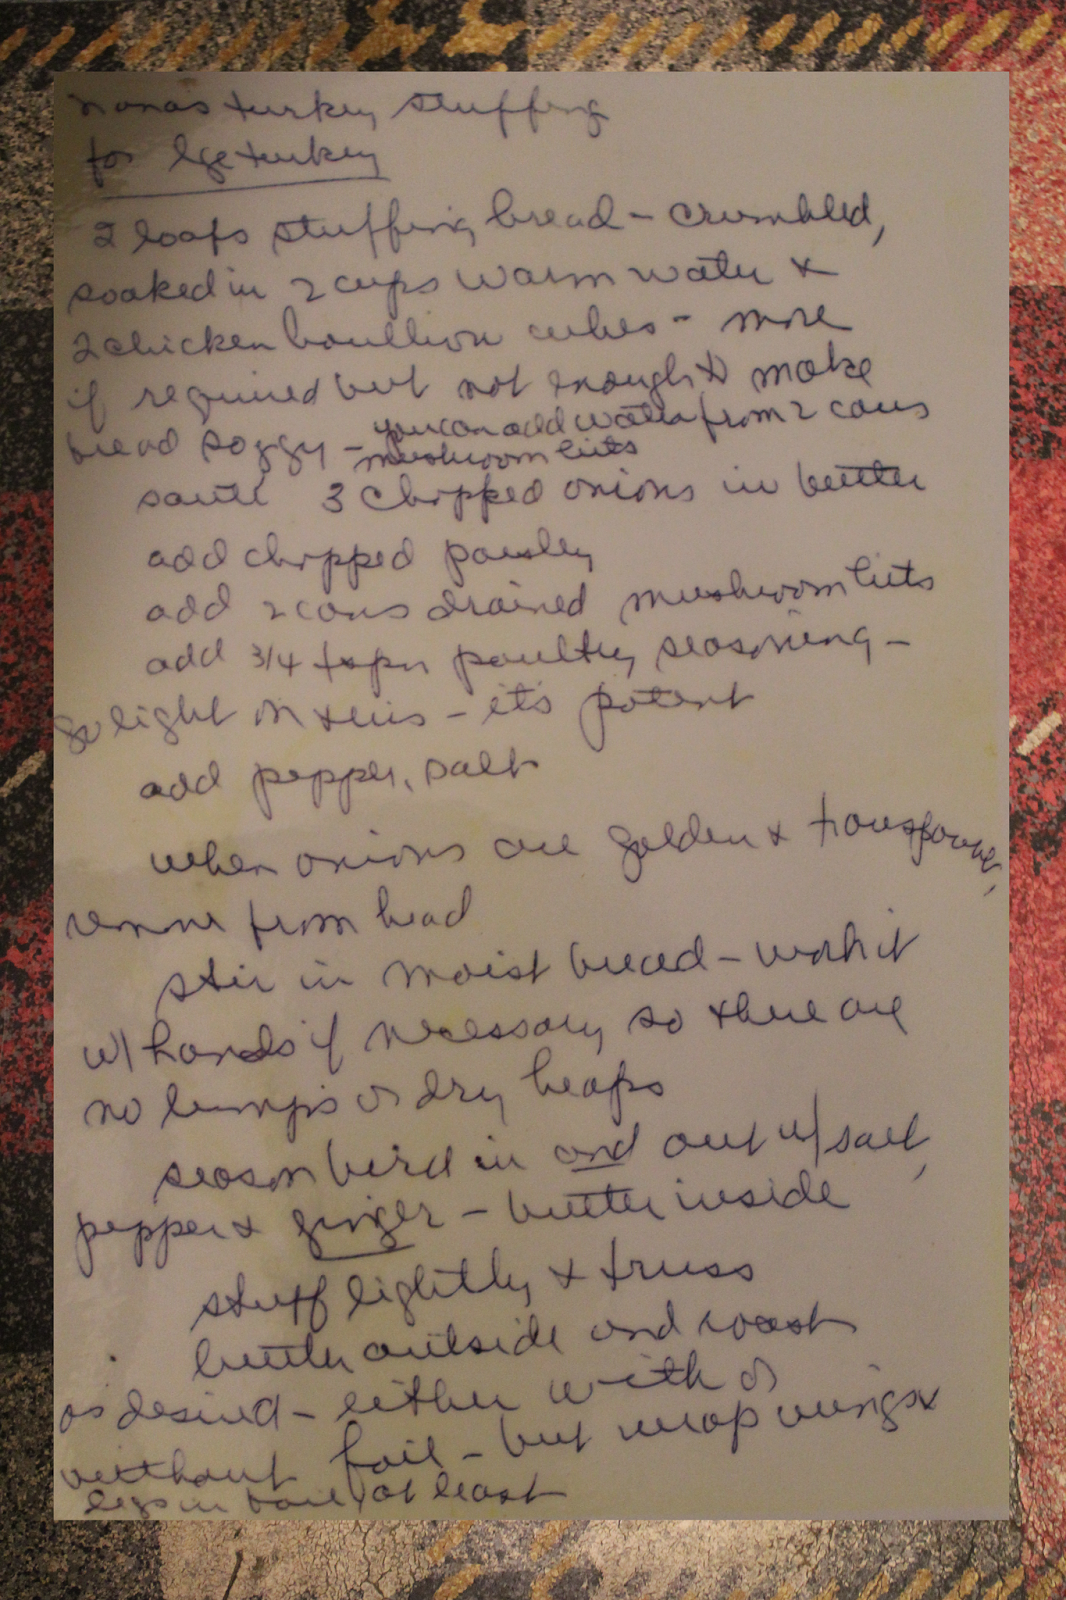 nanas turkey stuffing
for lge turkey
2 loafs stuffing bread - crumbled,
soaked in 2 cups warm water &
2 chicken boullion cubes - more
if required but not enough to make
bread soggy - you can add water from 2 cans
mushroom bits
sauté 3 chopped onions in butter
add chopped parsley
add 2 cans drained mushroom bits
add 3/4 tspn poultry seasoning -
go light on this - it's potent
add pepper, salt
when onions are golden &
remove from head
stir in moist bread - work it
w/ hands if necessary so there are
no lumps or dry heaps
season bird in and out w/ salt,
pepper & ginger - butter inside
stuff lightly & truss
butter outside and roast
as desired - either with or
without foil - but wrap wings &
legs in foil, at least